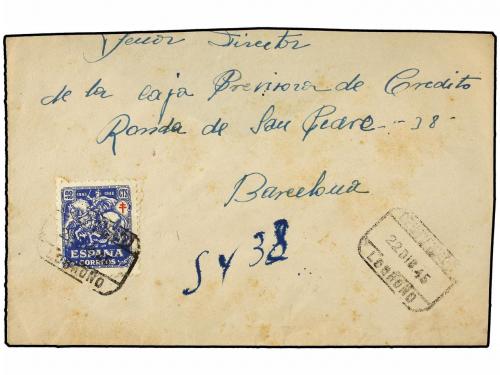 Señor Director
de la caja Previsora de Credito
Ronda de San Pedro - 38 -
Barcelona
ESPAÑA
CORREOS
LOGROÑO
54 38
22 DIC 45
LOGROÑO